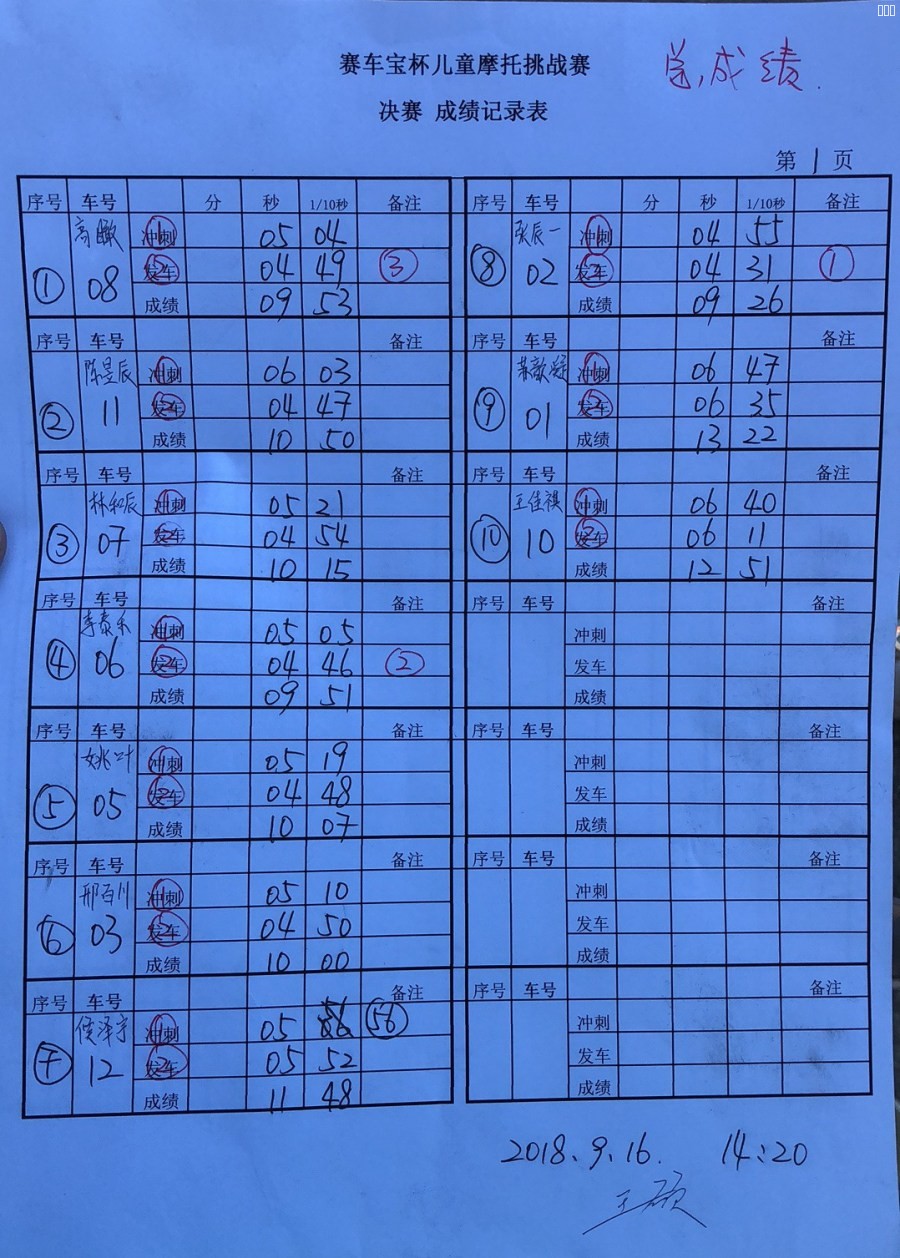 赛车宝杯儿童摩托挑战赛
总成绩
决赛 成绩记录表
第 1 页
序号 车号 分 秒 1/10秒 备注
高瞰 冲刺 05 04
① 08 发车 04 49 ③
成绩 09 53
序号 车号 备注
陈昱辰 冲刺 06 03
② 11 发车 04 47
成绩 10 50
序号 车号 备注
林和辰 冲刺 05 21
③ 07 发车 04 54
成绩 10 15
序号 车号 备注
李泰禾 冲刺 05 05
④ 06 发车 04 46 ②
成绩 09 51
序号 车号 备注
姚叶 冲刺 05 19
⑤ 05 发车 04 48
成绩 10 07
序号 车号 备注
邢百川 冲刺 05 10
⑥ 03 发车 04 50
成绩 10 00
序号 车号 备注
侯泽宇 冲刺 05 56
⑦ 12 发车 05 52
成绩 11 48
序号 车号 分 秒 1/10秒 备注
张辰一 冲刺 04 55
⑧ 02 发车 04 31 ①
成绩 09 26
序号 车号 备注
冲刺 06 47
⑨ 01 发车 06 35
成绩 13 22
序号 车号 备注
王佳祺 冲刺 06 40
⑩ 10 发车 06 11
成绩 12 51
序号 车号 备注
冲刺
发车
成绩
序号 车号 备注
冲刺
发车
成绩
序号 车号 备注
冲刺
发车
成绩
序号 车号 备注
冲刺
发车
成绩
2018.9.16. 14:20
王硕